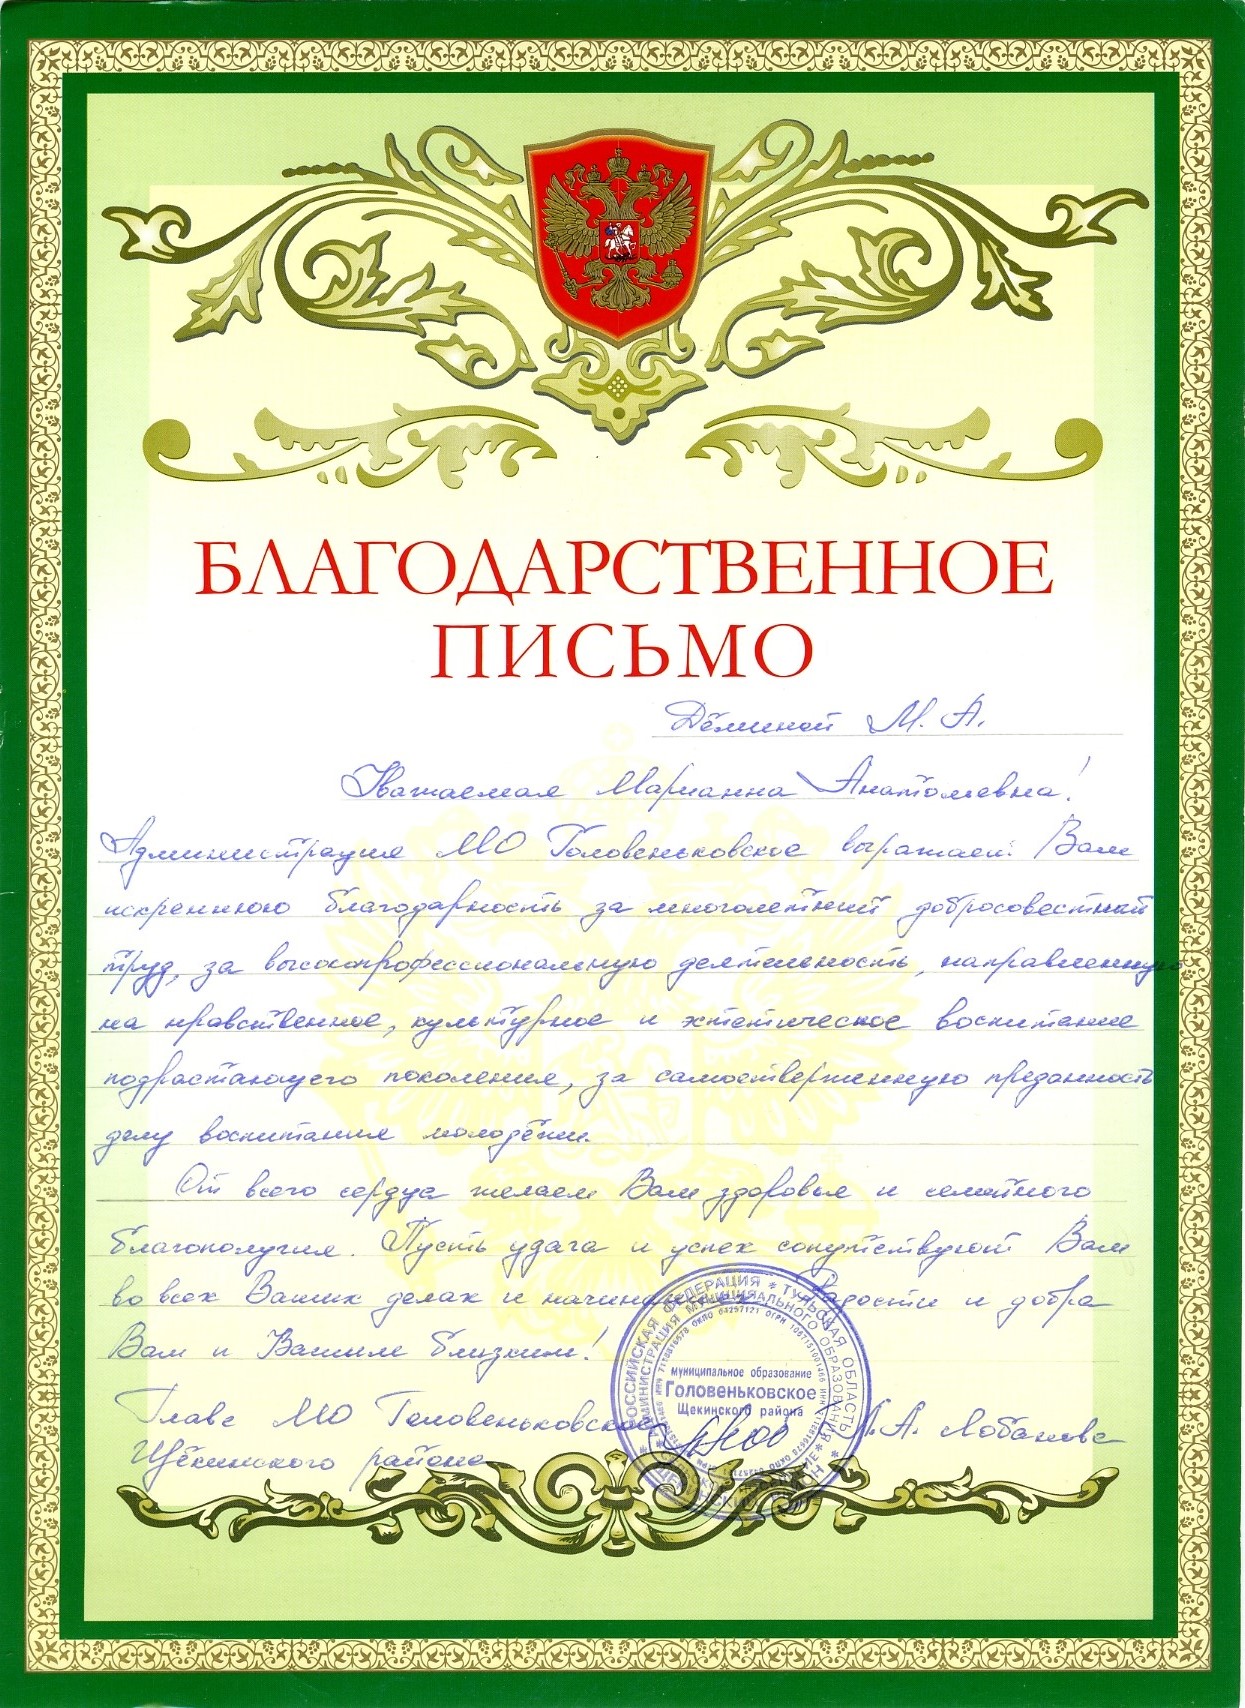 БЛАГОДАРСТВЕННОЕ
ПИСЬМО
Дёминой М. А.
Уважаемая Марианна Анатольевна!
Администрация МО Головеньковское выражает Вам
искреннюю благодарность за многолетний добросовестный
труд, за высокопрофессиональную деятельность, направленную
на нравственное, культурное и эстетическое воспитание
подрастающего поколения, за самоотверженную преданность
делу воспитания молодёжи.
От всего сердца желаем Вам здоровья и семейного
благополучия. Пусть удача и успех сопутствуют Вам
во всех Ваших делах и начинаниях. Радости и добра
Вам и Вашим близким!
Глава МО Головеньковское
Щёкинского района
Л.А. Лобанова
РОССИЙСКАЯ ФЕДЕРАЦИЯ * ТУЛЬСКАЯ ОБЛАСТЬ
АДМИНИСТРАЦИЯ МУНИЦИПАЛЬНОГО ОБРАЗОВАНИЯ
муниципальное образование
Головеньковское
Щекинского района